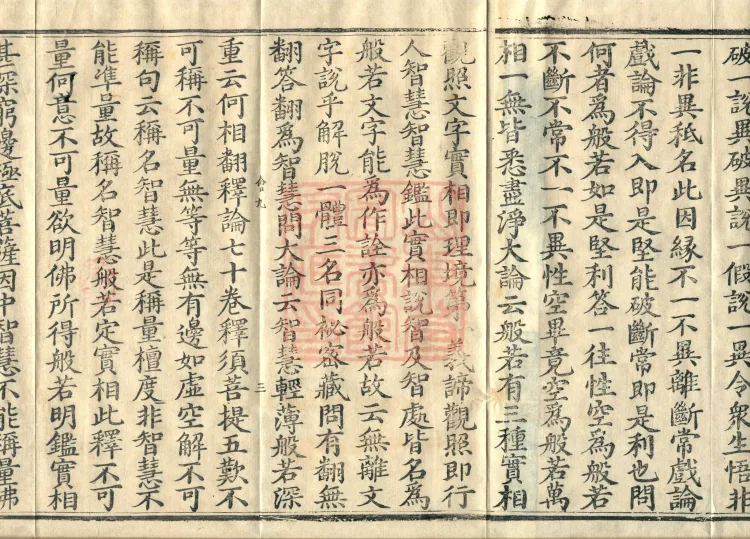 破一說異破異說一假說一異令衆生悟非
一非異秖名此因緣不一不異離斷常戲論
戲論不得入即是堅能破斷常即是利也問
何者爲般若如是堅利答一往性空爲般若
不斷不常不一不異性空畢竟空爲般若萬
相一無皆悉盡淨大論云般若有三種實相
觀照文字實相即理境第一義諦觀照即行
人智慧智慧鑑此實相說智及智處皆名爲
般若文字能爲作詮亦爲般若故云無離文
字說乎解脫一體三名同祕密藏問有翻無
翻答翻爲智慧問大論云智慧輕薄般若深
重云何相翻釋論七十卷釋須菩提五歎不
可稱不可量無等等無有邊如虛空解不可
稱句云稱名智慧此是稱量檀度非智慧不
能準量故稱名智慧般若定實相此釋不可
量何意不可量欲明佛所得般若明鑑實相
甚深窮邊極底菩薩因中智慧不能稱量佛
合九
三